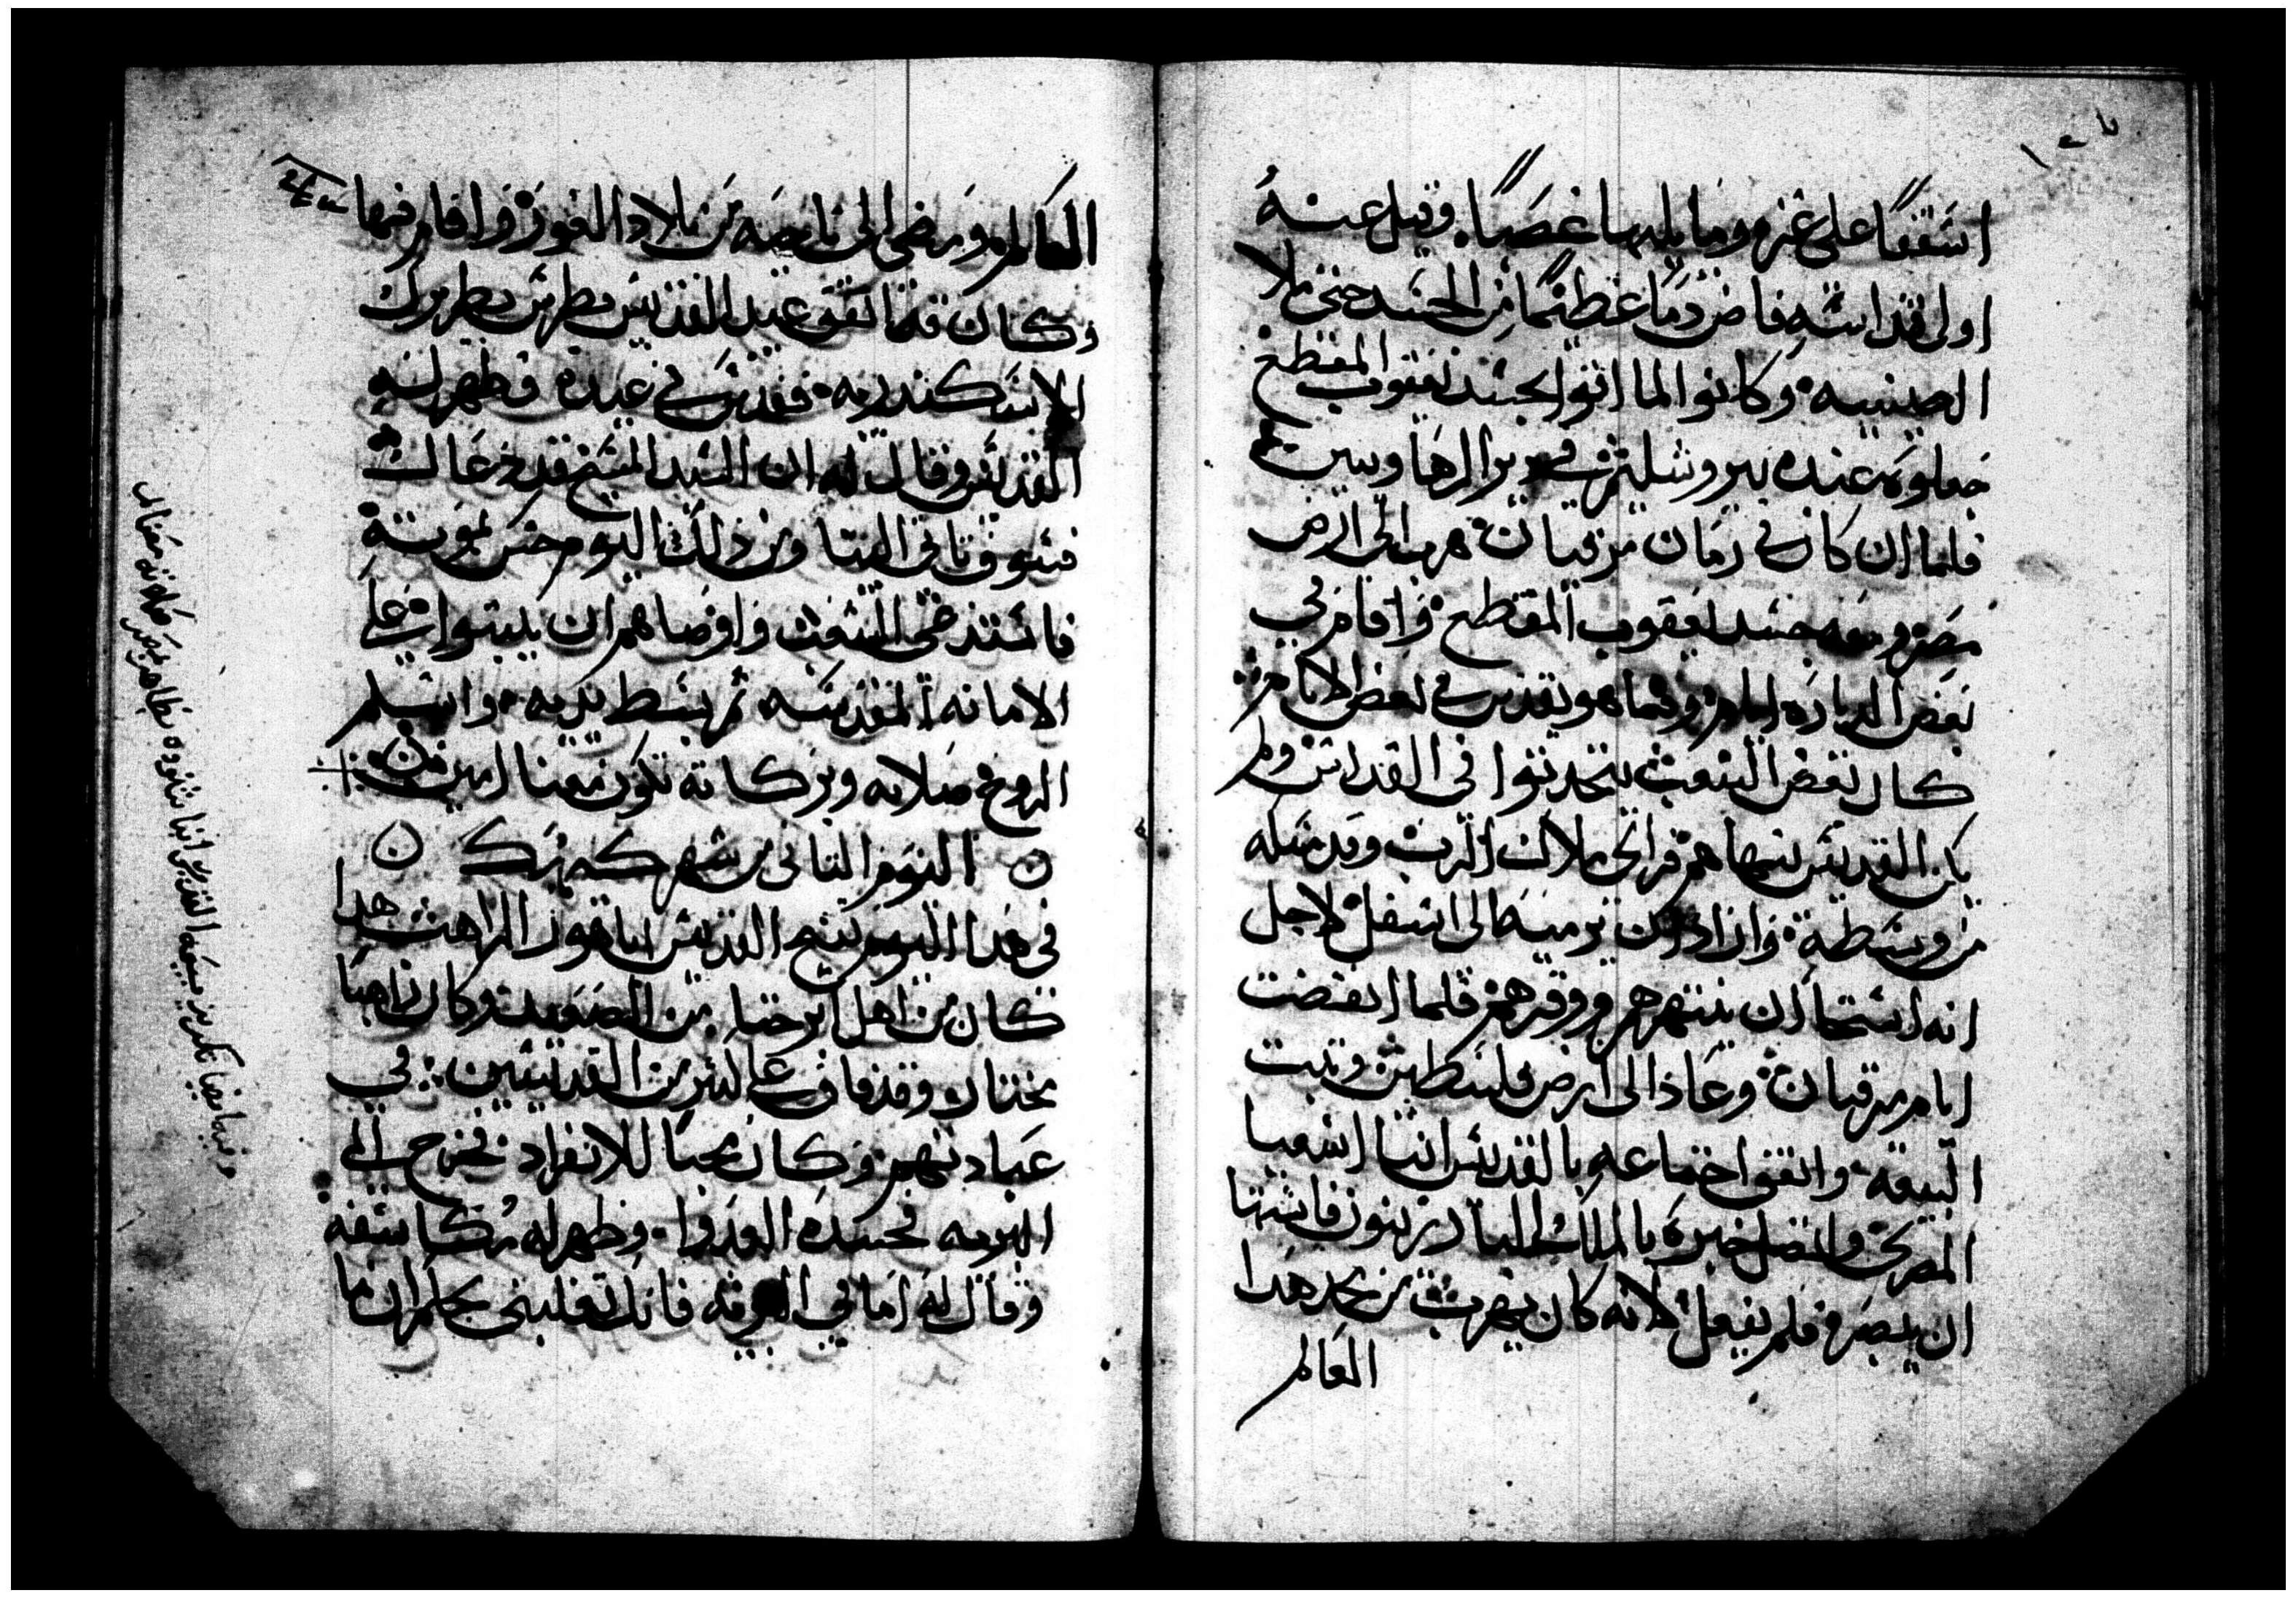 اسقفا على غزه وما يليها غصبا. وقيل عنه
اولى قداسه فاض دما عظيما من الجسد حتى ملا
الصينيه وكانوا لما اتوا بجسد يعقوب المقطع
جعلوه عنده بيروشليم في دير الرها وسبت
فلما ان كان في زمان مرقيان هرب الى ارض
مصر ومعه جسد يعقوب المقطع واقام في
بعض الديارة ايام وفيما هو يقدس في بعض الايام
كان بعض الشعب يتحدثوا في القداس ولم
يكن القديس ينهاهم فراى ملاك الرب وقد مسكه
من وسطه واراد ان يرميه الى اسفل لاجل
انه استحا ان ينتهرهم ووقرهم فلما انقضت
ايام مرقيان وعاد الى ارض فلسطين وثبت
البيعه واتفق اجتماعه بالقديس انبا اشعيا
المصري واتصل خبره بالملك البار زينون فاشتها
ان يبصره فلم يفعل لانه كان يهرب من مجد هدا
العالم
العالم ومضى الى ناحيه من بلاد الغور واقام فيها
وكان قد اتفق عيد القديس بطرس بطريرك
الاسكندريه فقدس في عيده وظهر له
القديس وقال له ان السيد المسيح قد دعاك
فسوف تاتي الينا ومن ذلك اليوم حس بموته
فاستدعى الشعب واوصاهم ان يثبتوا على
الامانه المقدسه ثم بسط يديه واسلم
الروح صلاته وبركاته تكون معنا امين
اليوم التاني من شهر كيهك
في هدا اليوم تنيح القديس اباهور الراهب هدا
كان من اهل ابرجت من الصعيد وكان راهبا
مختار وقد فاق على كثير من القديسين في
عبادتهم وكان محبا للانفراد فخرج الى
البريه فحسده العدوا وظهر له مكاشفه
وقال له اما في البريه فانك تغلبني بحكم ان ما